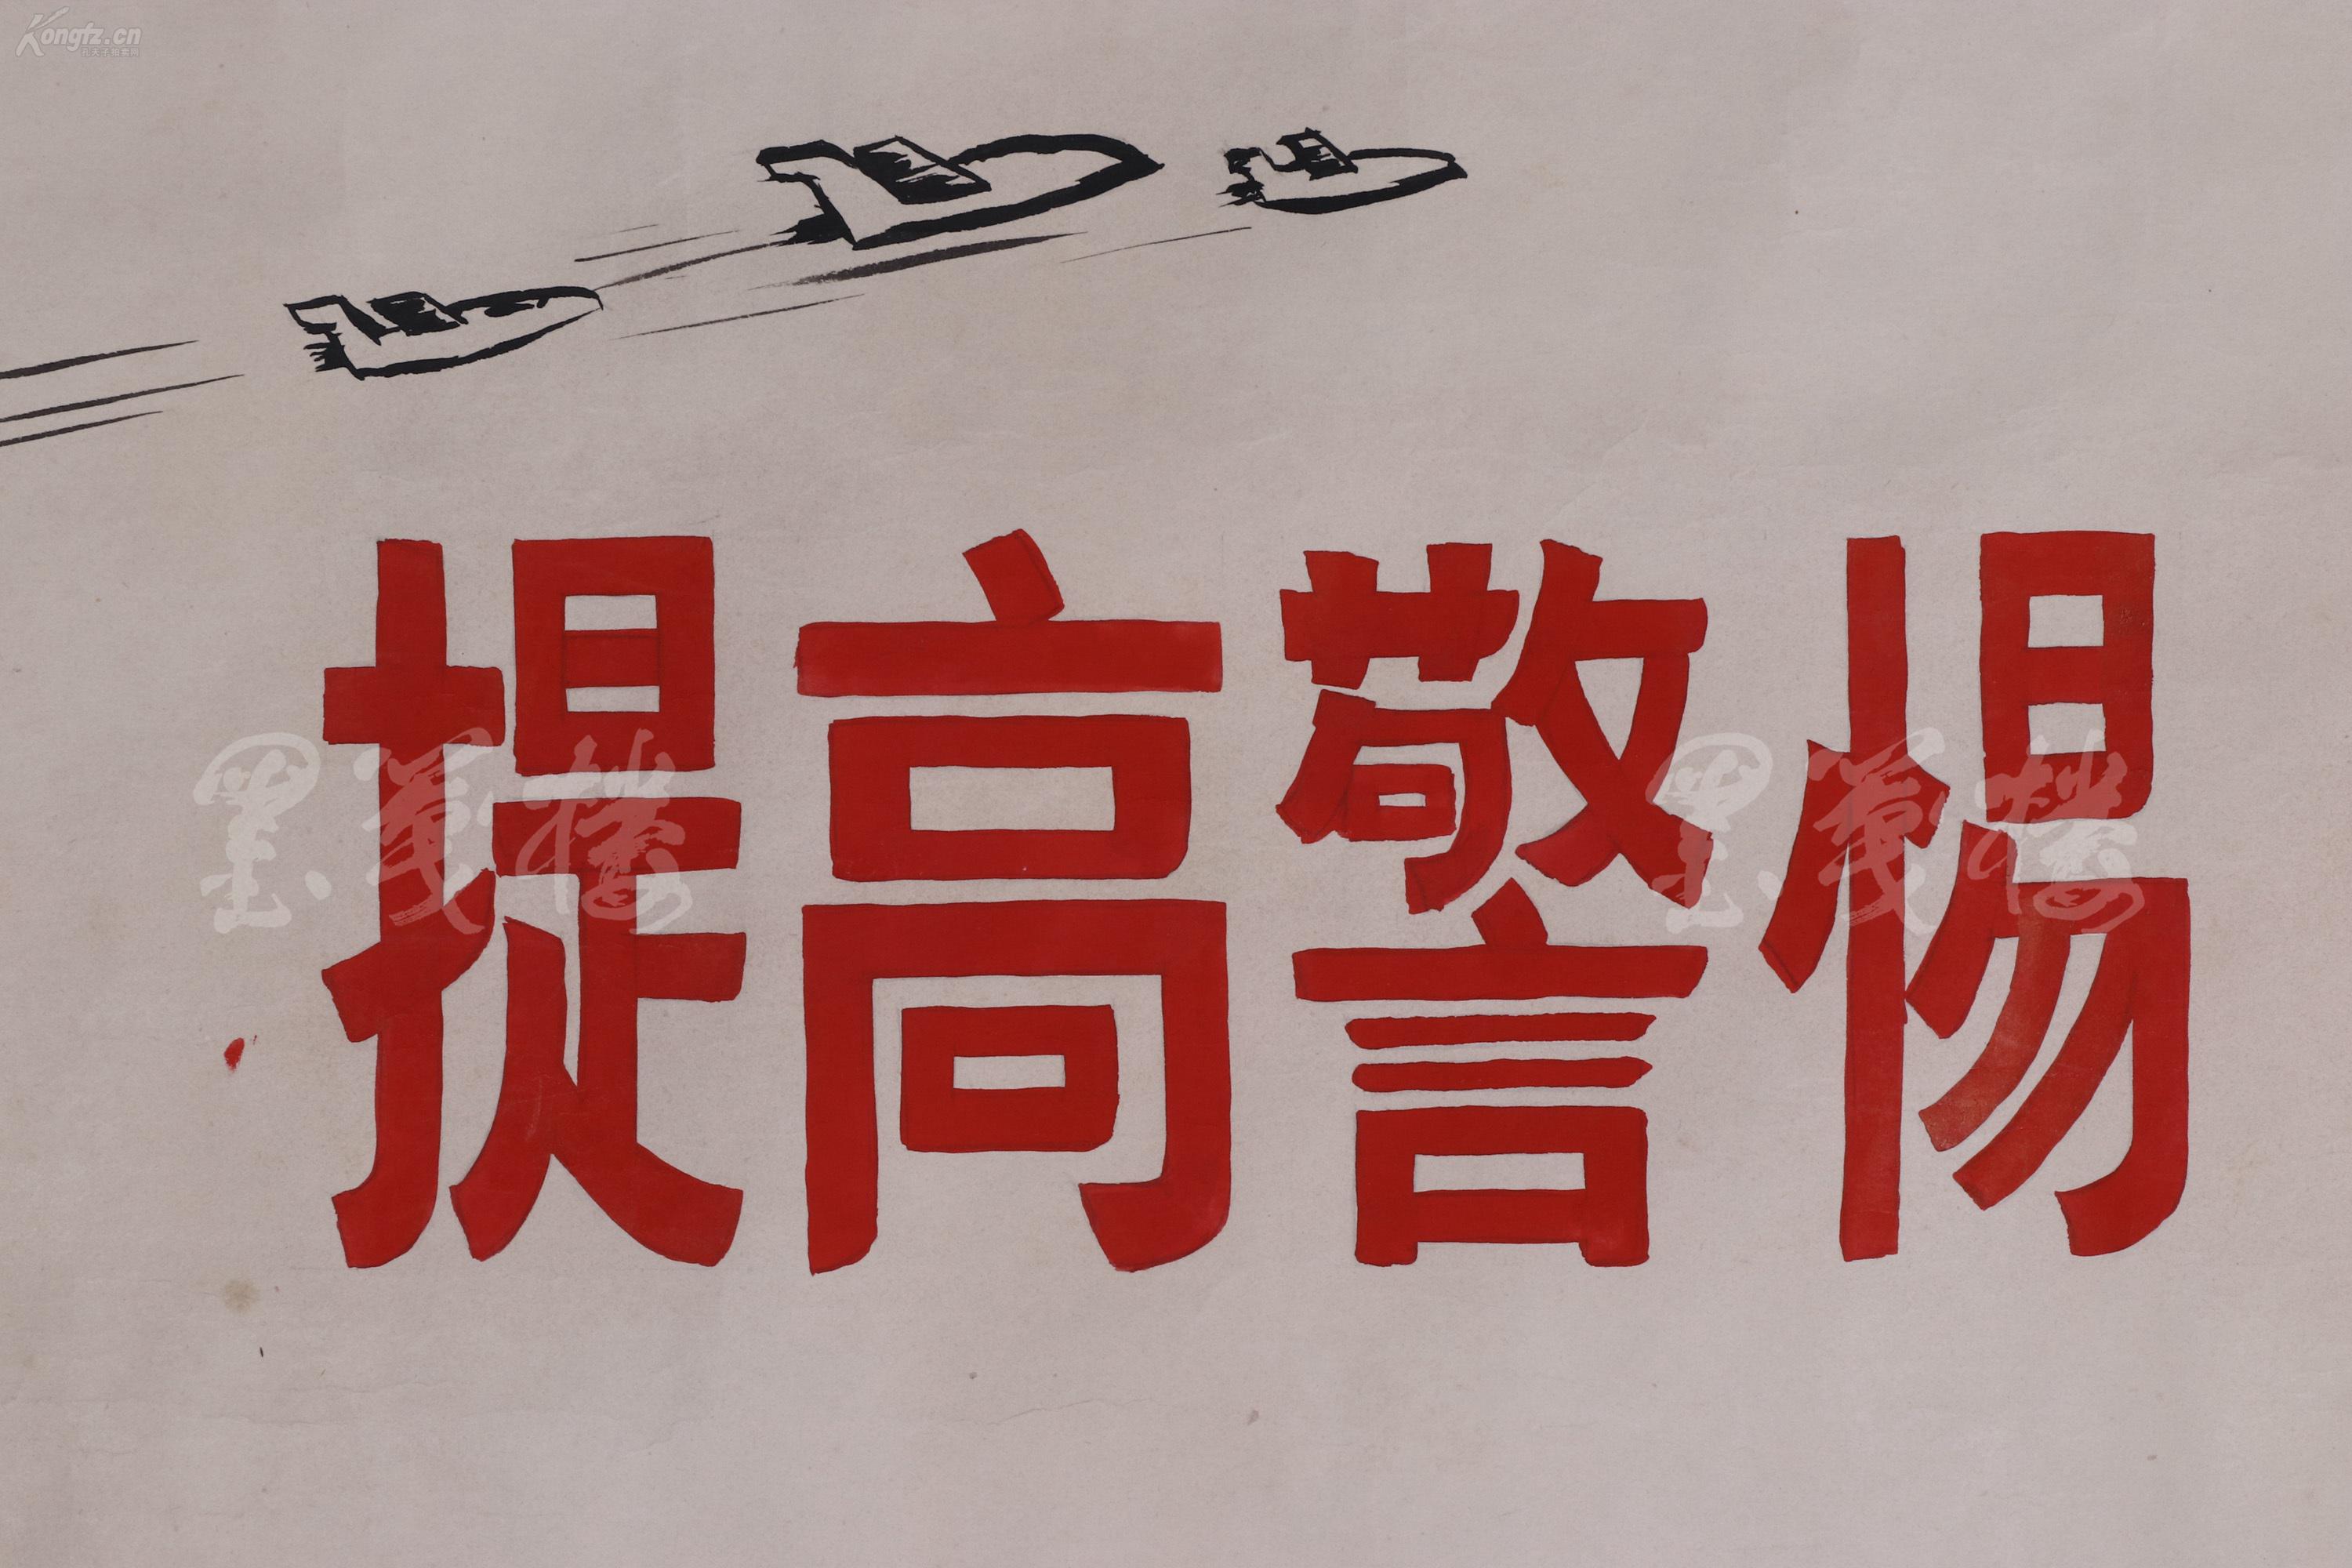 Kongfz.cn
孔夫子拍卖网
提高警惕
墨笺楼 墨笺楼